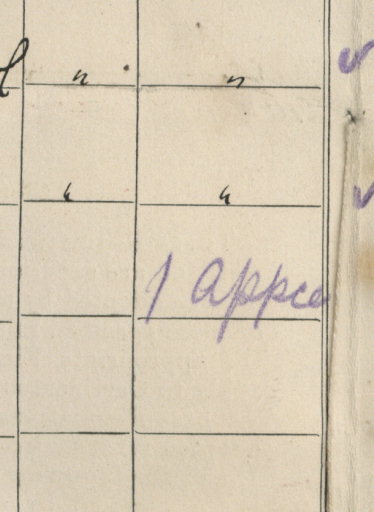 " "
" "
1 appce